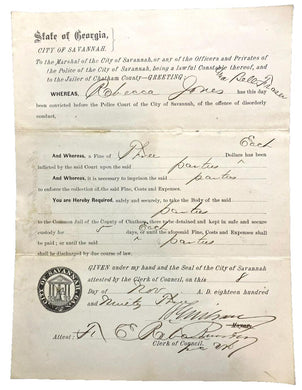 State of Georgia,
CITY OF SAVANNAH.
To the Marshal of the City of Savannah, or any of the Officers and Privates of
the Police of the City of Savannah, being a lawful Constable thereof, and
to the Jailer of Chatham County—GREETING:
WHEREAS, Rebecca Jones has this day
been convicted before the Police Court of the City of Savannah, of the offence of disorderly
conduct.
Each
And Whereas, a Fine of Three Dollars has been
inflicted by the said Court upon the said parties
And Whereas, it is necessary to imprison the said parties
to enforce the collection of the said Fine, Costs and Expenses.
You are Hereby Required, safely and securely, to take the Body of the said
parties
to the Common Jail of the County of Chatham, there to be detained and kept in safe and secure
custody for 5 days, or until the aforesaid Fine, Costs and Expenses shall
Each
be paid; or until the said parties
shall be discharged by due course of law.
GIVEN under my hand and the Seal of the City of Savannah
attested by the Clerk of Council, on this 8
Day of Nov A. D. eighteen hundred
and Ninety Three
Mayor.
Attest:
Clerk of Council.
CITY OF SAVANNAH